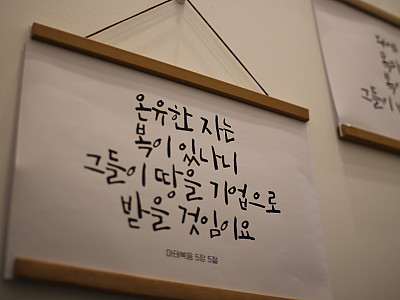 온유한 자는
복이 있나니
그들이 땅을 기업으로
받을 것임이요
마태복음 5장 5절
그들이